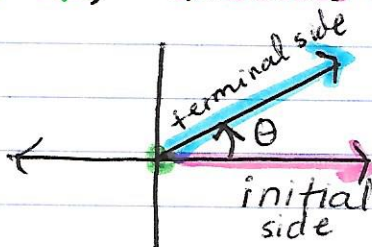 terminal side
θ
initial
side